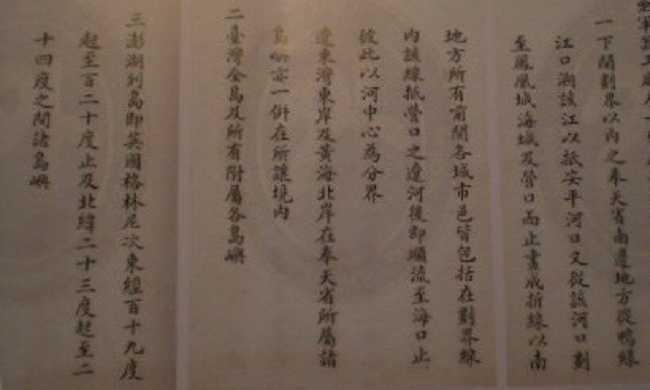 一下開劃界以內之奉天省南邊地方從鴨綠
江口溯該江以抵安平河口又從該河口劃
至鳳凰城海城及營口而止畫成折線以南
地方所有前開各城市邑皆包括在劃界線
內該線抵營口之遼河後即順流至海口止
彼此以河中心為分界
遼東灣東岸及黃海北岸在奉天省所屬諸
島嶼亦一併在所讓境內
二臺灣全島及所有附屬各島嶼
三澎湖列島即英國格林尼次東經百十九度
起至百二十度止及北緯二十三度起至二
十四度之間諸島嶼